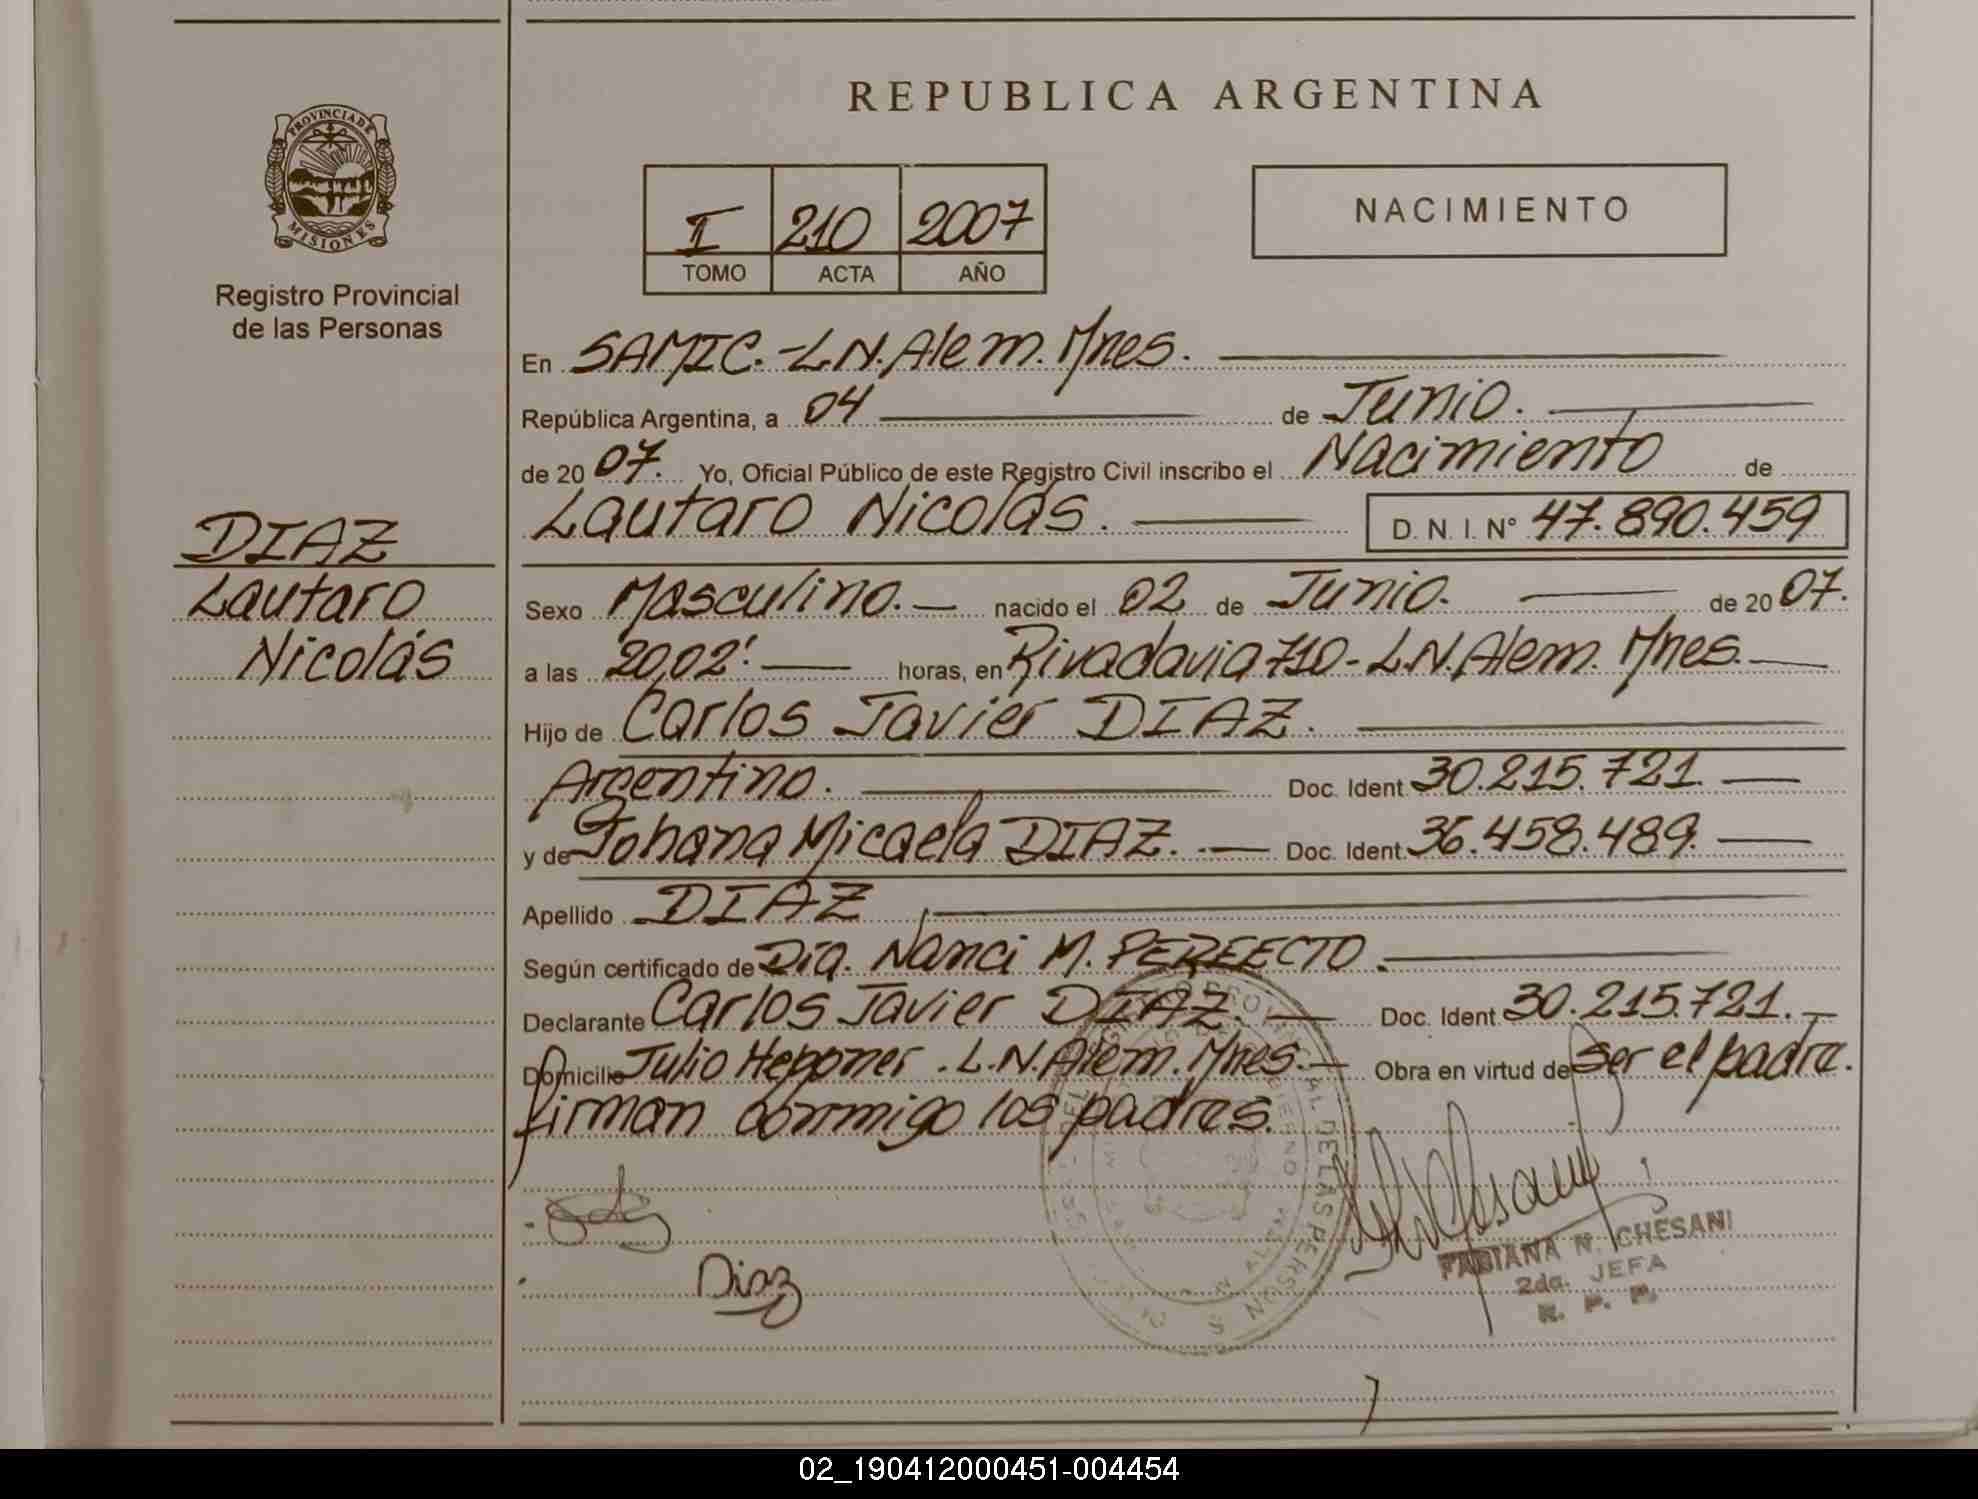 REPUBLICA ARGENTINA
PROVINCIA DE MISIONES
Registro Provincial
de las Personas
I 210 2007
TOMO ACTA AÑO
NACIMIENTO
En SAMIC.-L.N.Alem. Mnes.
República Argentina, a 04 de Junio.
de 2007. Yo, Oficial Público de este Registro Civil inscribo el Nacimiento de
Lautaro Nicolás. D. N. I. N° 47.890.459
DIAZ
Lautaro
Nicolás
Sexo Masculino. nacido el 02 de Junio. de 2007.
a las 20,02'. horas, en Rivadavia 710-L.N.Alem. Mnes.
Hijo de Carlos Javier DIAZ.
Argentino. Doc. Ident. 30.215.721.
y de Johana Micaela DIAZ. Doc. Ident. 36.458.489.
Apellido DIAZ
Según certificado de Dra. Nanci M. PERFECTO.
Declarante Carlos Javier DIAZ. Doc. Ident. 30.215.721.
Domicilio Julio Heppner. L.N.Alem. Mnes. Obra en virtud de ser el padre.
firman conmigo los padres.
Diaz
FABIANA N. CHESANI
2da. JEFA
R. P. P.
02_190412000451-004454